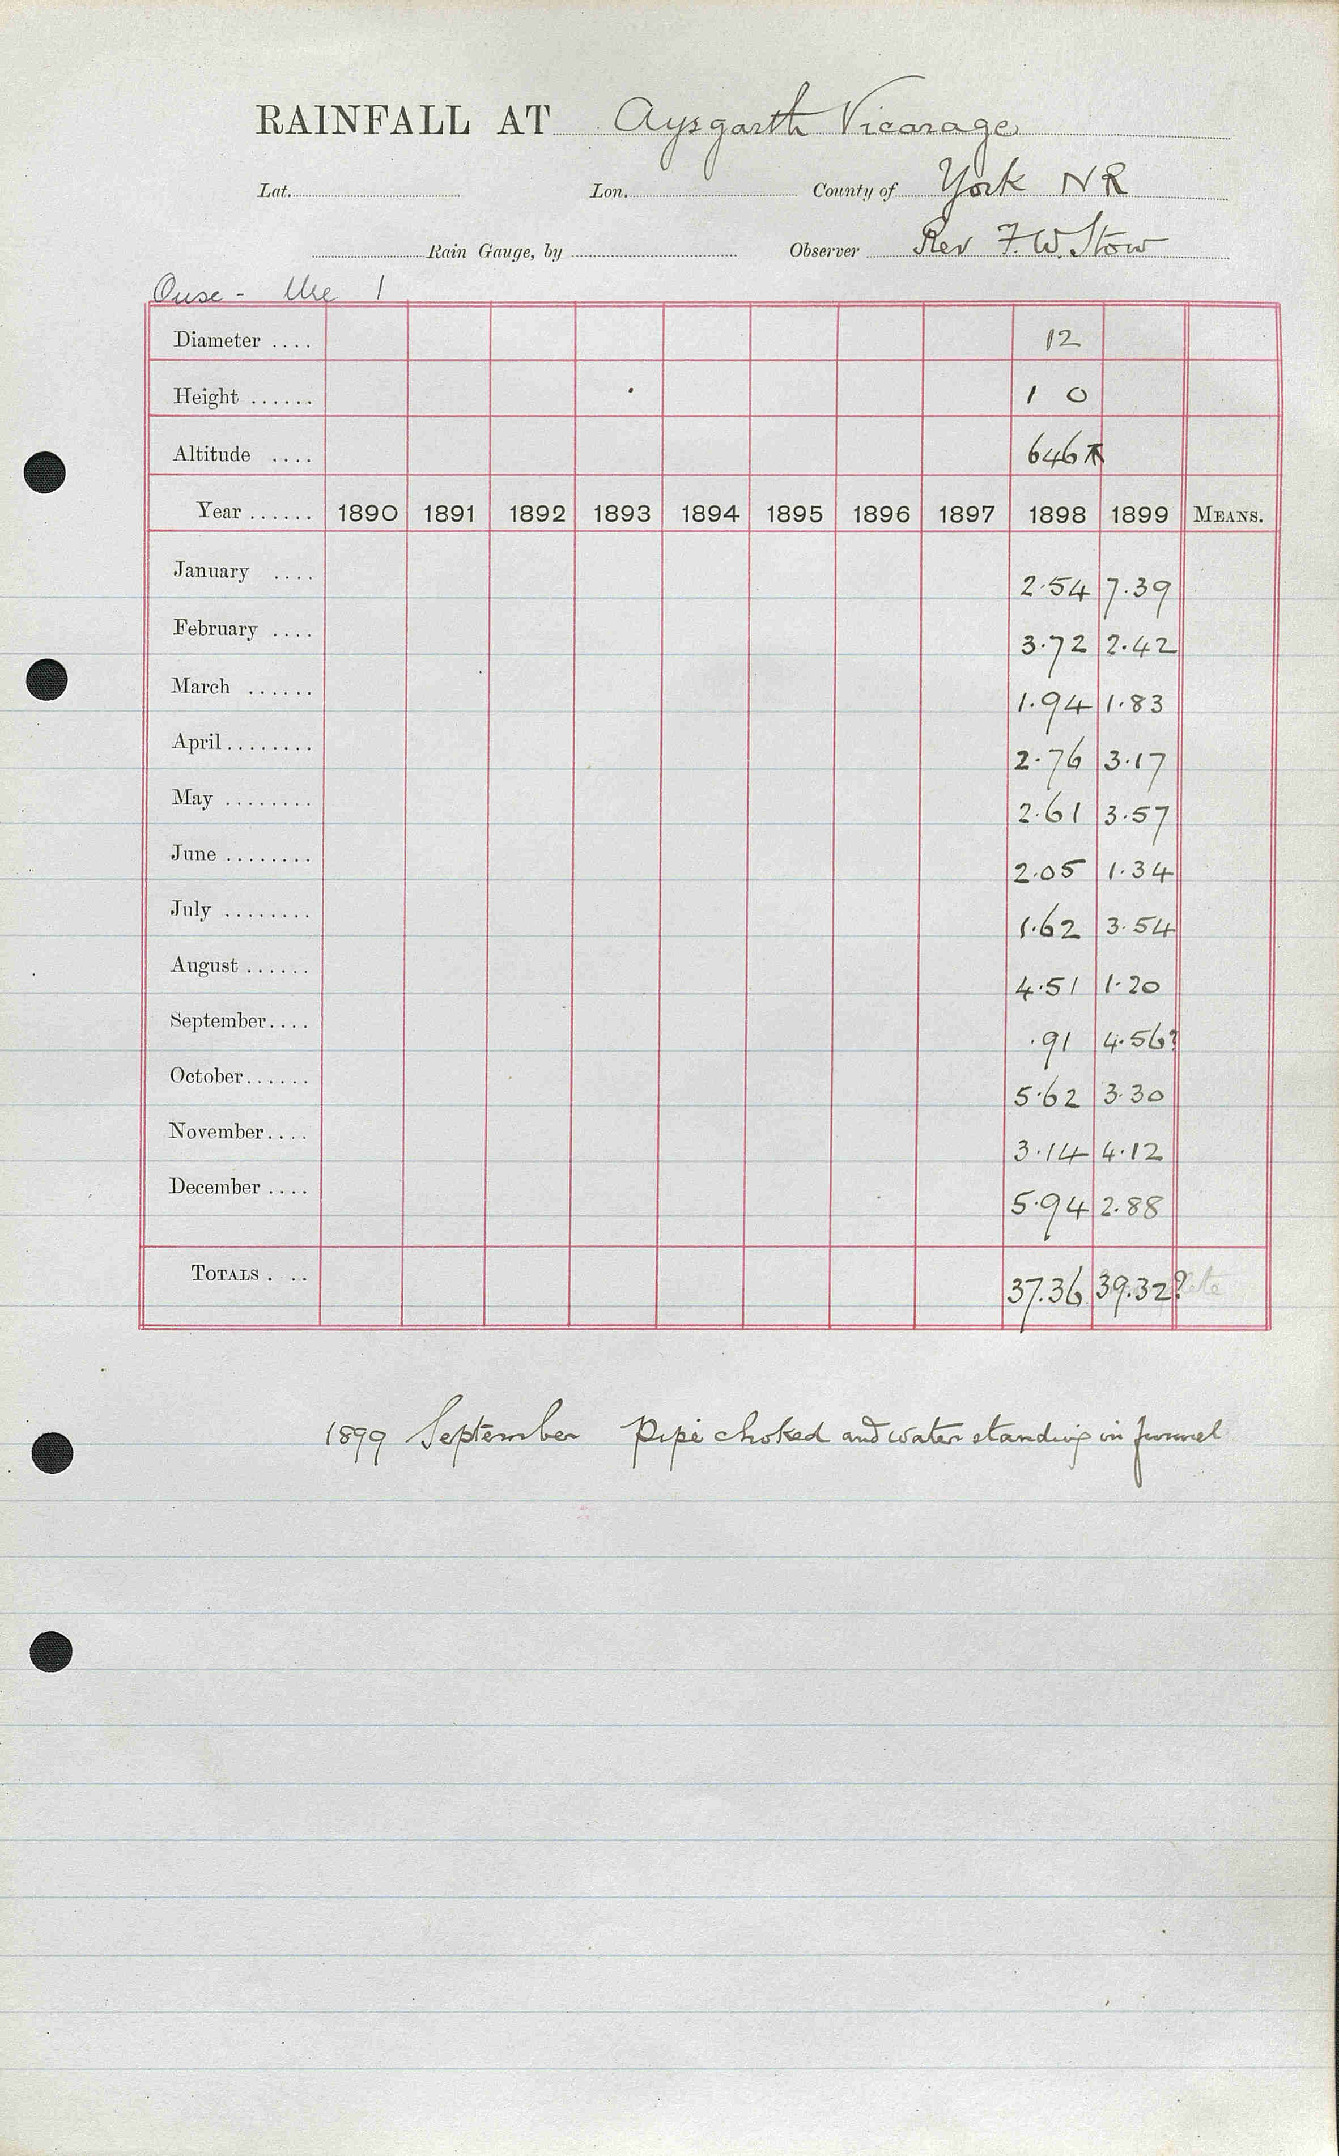 RAINFALL AT Aysgarth Vicarage
Lat. Lon. County of York NR
Rain Gauge, by Observer Rev F.W. Stow
Ouse - Ure 1
Diameter .... 12
Height ...... 1 0
Altitude .... 646
Year ...... 1890 1891 1892 1893 1894 1895 1896 1897 1898 1899 MEANS.
January .... 2.54 7.39
February .... 3.72 2.42
March ...... 1.94 1.83
April ........ 2.76 3.17
May ........ 2.61 3.57
June ........ 2.05 1.34
July ........ 1.62 3.54
August ...... 4.51 1.20
September .... .91 4.56?
October ...... 5.62 3.30
November .... 3.14 4.12
December .... 5.94 2.88
TOTALS . .. 37.36 39.32?
1899 September Pipe choked and water standing in funnel